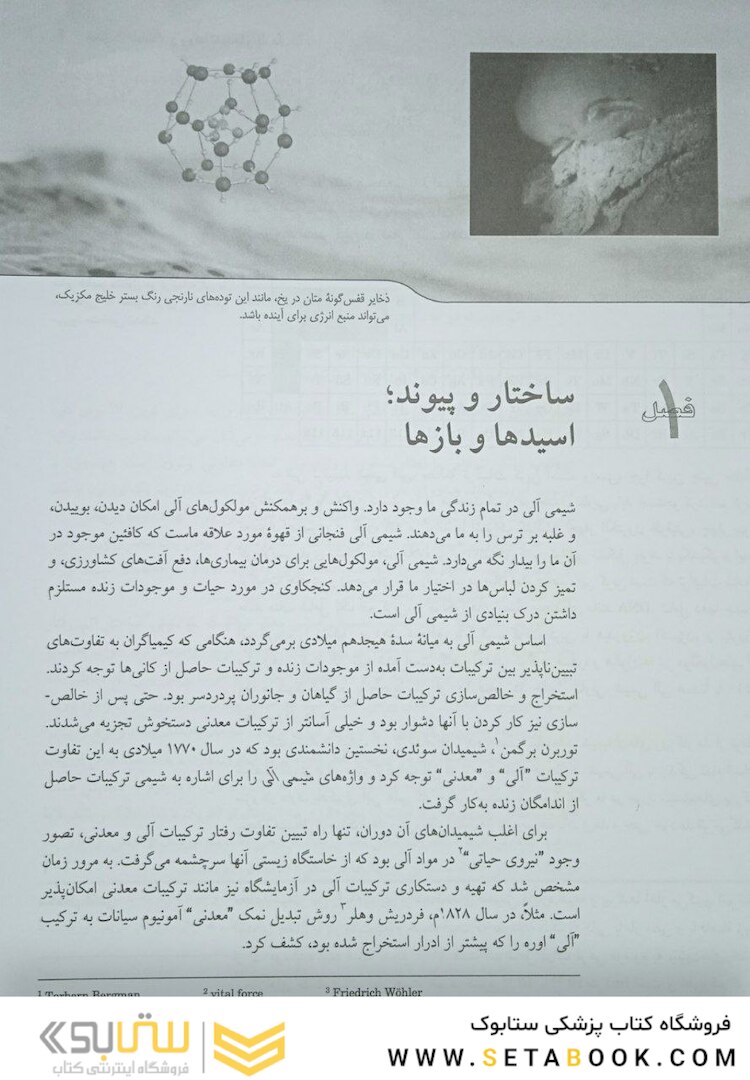 ذخایر قفس‌گونهٔ متان در یخ، مانند این توده‌های نارنجی رنگ بستر خلیج مکزیک،
می‌تواند منبع انرژی برای آینده باشد.
فصل ۱
ساختار و پیوند؛
اسیدها و بازها
شیمی آلی در تمام زندگی ما وجود دارد. واکنش و برهمکنش مولکول‌های آلی امکان دیدن، بوییدن،
و غلبه بر ترس را به ما می‌دهند. شیمی آلی فنجانی از قهوهٔ مورد علاقه ماست که کافئین موجود در
آن ما را بیدار نگه می‌دارد. شیمی آلی، مولکول‌هایی برای درمان بیماری‌ها، دفع آفت‌های کشاورزی، و
تمیز کردن لباس‌ها در اختیار ما قرار می‌دهد. کنجکاوی در مورد حیات و موجودات زنده مستلزم
داشتن درک بنیادی از شیمی آلی است.
اساس شیمی آلی به میانهٔ سدهٔ هیجدهم میلادی برمی‌گردد، هنگامی که کیمیاگران به تفاوت‌های
تبیین‌ناپذیر بین ترکیبات به‌دست آمده از موجودات زنده و ترکیبات حاصل از کانی‌ها توجه کردند.
استخراج و خالص‌سازی ترکیبات حاصل از گیاهان و جانوران پردردسر بود. حتی پس از خالص-
سازی نیز کار کردن با آنها دشوار بود و خیلی آسانتر از ترکیبات معدنی دستخوش تجزیه می‌شدند.
توربرن برگمن۱، شیمیدان سوئدی، نخستین دانشمندی بود که در سال ۱۷۷۰ میلادی به این تفاوت
ترکیبات ”آلی“ و ”معدنی“ توجه کرد و واژه‌های شیمی آلی را برای اشاره به شیمی ترکیبات حاصل
از اندامگان زنده به‌کار گرفت.
برای اغلب شیمیدان‌های آن دوران، تنها راه تبیین تفاوت رفتار ترکیبات آلی و معدنی، تصور
وجود ”نیروی حیاتی“۲ در مواد آلی بود که از خاستگاه زیستی آنها سرچشمه می‌گرفت. به مرور زمان
مشخص شد که تهیه و دستکاری ترکیبات آلی در آزمایشگاه نیز مانند ترکیبات معدنی امکان‌پذیر
است. مثلاً، در سال ۱۸۲۸م، فردریش وهلر۳ روش تبدیل نمک ”معدنی“ آمونیوم سیانات به ترکیب
”آلی“ اوره را که پیشتر از ادرار استخراج شده بود، کشف کرد.
1 Torbern Bergman 2 vital force 3 Friedrich Wöhler
فروشگاه کتاب پزشکی ستابوک
WWW.SETABOOK.COM
ستابوک
فروشگاه اینترنتی کتاب